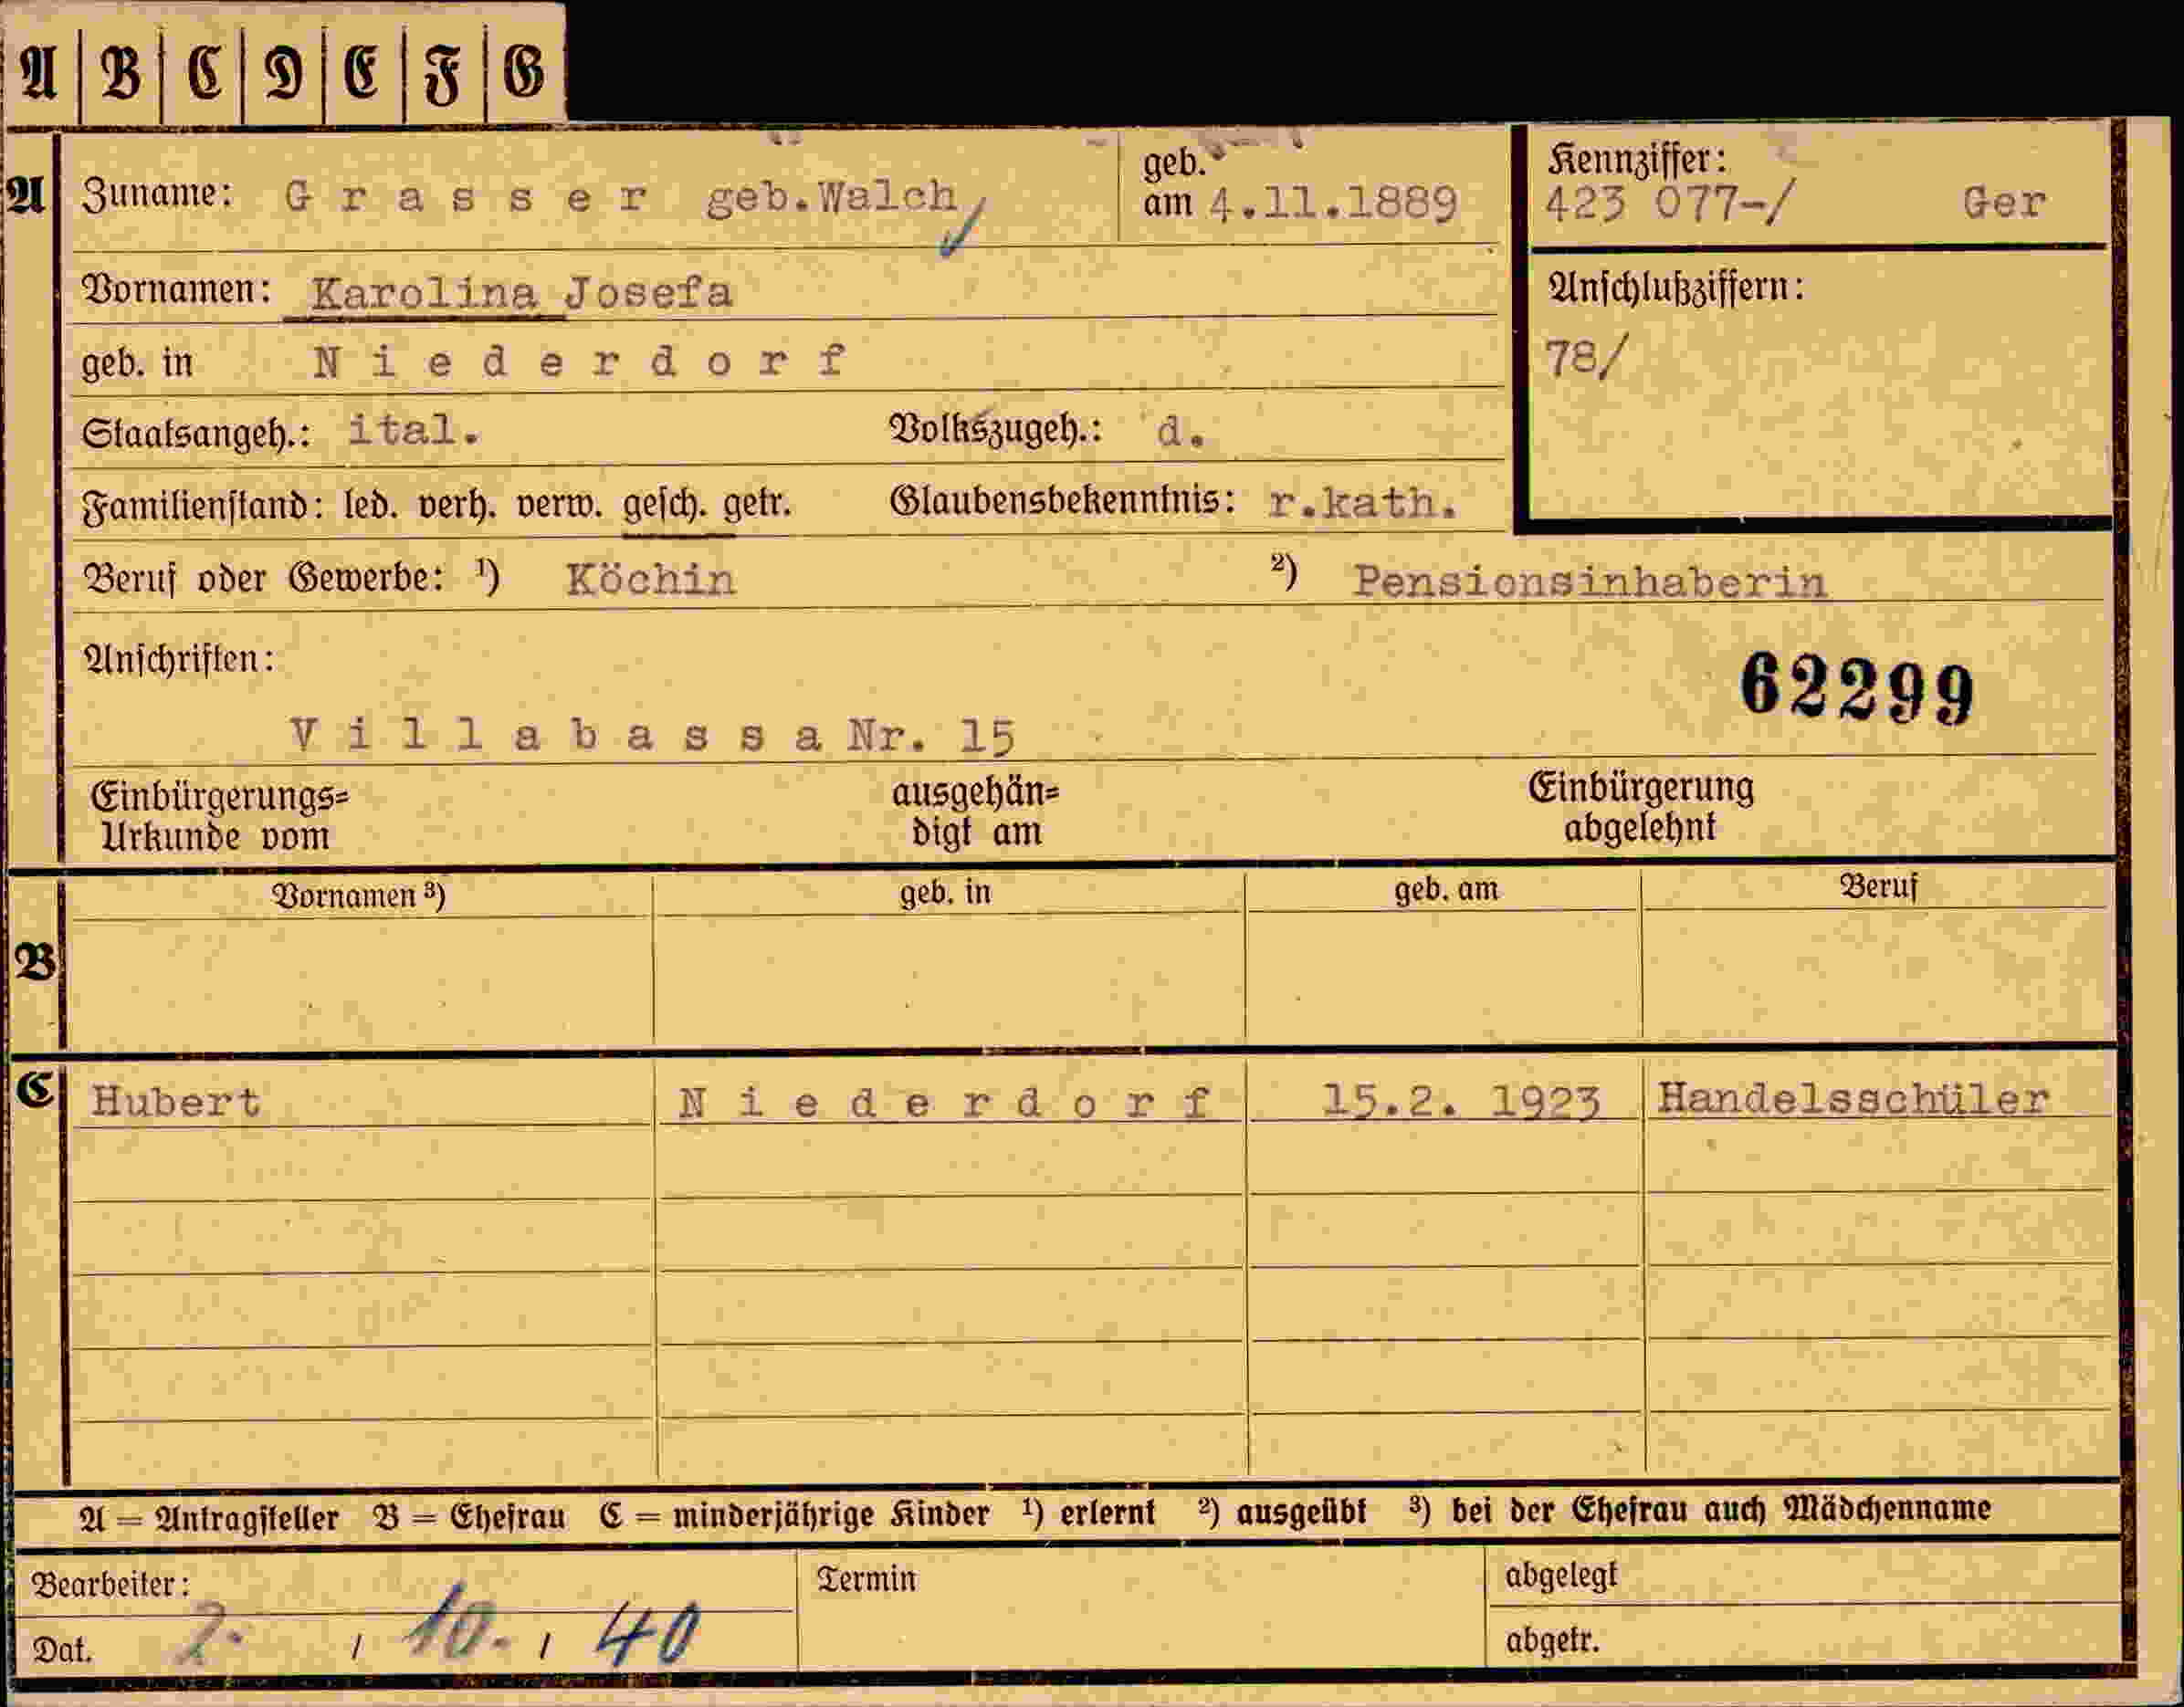 A B C D E F G
A
Zuname: Grasser geb.Walch
geb. am 4.11.1889
Kennziffer:
423 077-/ Ger
Vornamen: Karolina Josefa
Anschlußziffern:
78/
geb. in Niederdorf
Staatsangeh.: ital. Volkszugeh.: d.
Familienstand: led. verh. verw. gesch. getr. Glaubensbekenntnis: r.kath.
Beruf oder Gewerbe: ¹) Köchin ²) Pensionsinhaberin
Anschriften:
62299
Villabassa Nr. 15
Einbürgerungs= ausgehän= Einbürgerung
Urkunde vom digt am abgelehnt
Vornamen ³) geb. in geb. am Beruf
B
C Hubert Niederdorf 15.2. 1923 Handelsschüler
A = Antragsteller B = Ehefrau C = minderjährige Kinder ¹) erlernt ²) ausgeübt ³) bei der Ehefrau auch Mädchenname
Bearbeiter: Termin abgelegt
Dat. 2. / 10. / 40 abgetr.